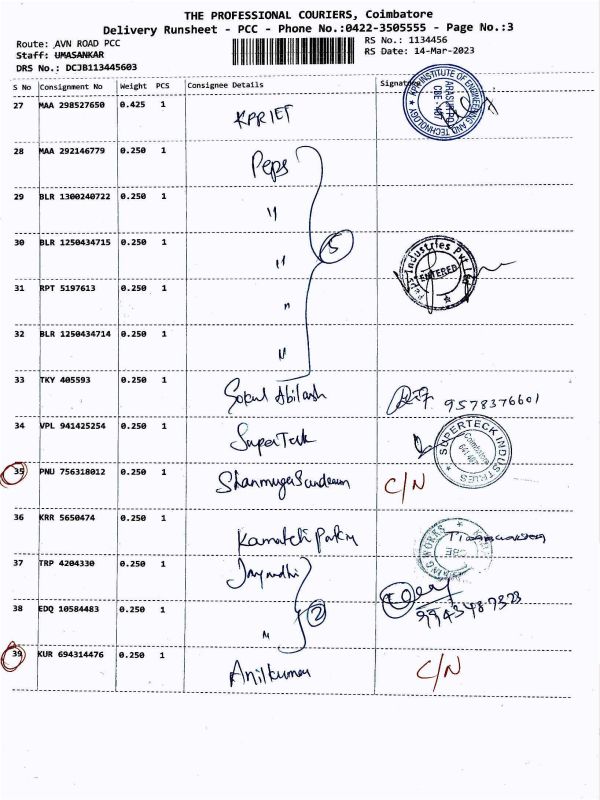 THE PROFESSIONAL COURIERS, Coimbatore
Delivery Runsheet - PCC - Phone No.:0422-3505555 - Page No.:3
Route: AVN ROAD PCC
Staff: UMASANKAR
DRS No.: DCJB113445603
RS No.: 1134456
RS Date: 14-Mar-2023
S No Consignment No Weight PCS Consignee Details Signature
27 MAA 298527650 0.425 1 KPRIET
KPR INSTITUTE OF ENGINEERING AND TECHNOLOGY
28 MAA 292146779 0.250 1 Peps
29 BLR 1300240722 0.250 1 "
30 BLR 1250434715 0.250 1 " 5
Peps Industries Pvt Ltd
ENTERED
31 RPT 5197613 0.250 1 "
32 BLR 1250434714 0.250 1 "
33 TKY 405593 0.250 1 Gokul Abilash 9578376601
34 VPL 941425254 0.250 1 SuperTeck
SUPERTECK INDUSTRIES
Coimbatore
35 PNU 756318012 0.250 1 ShanmugaSundaram C/N
36 KRR 5650474 0.250 1 Kamatchi
37 TRP 4204330 0.250 1 2
38 EDQ 10584483 0.250 1 "
39 KUR 694314476 0.250 1 Anilkumar C/N